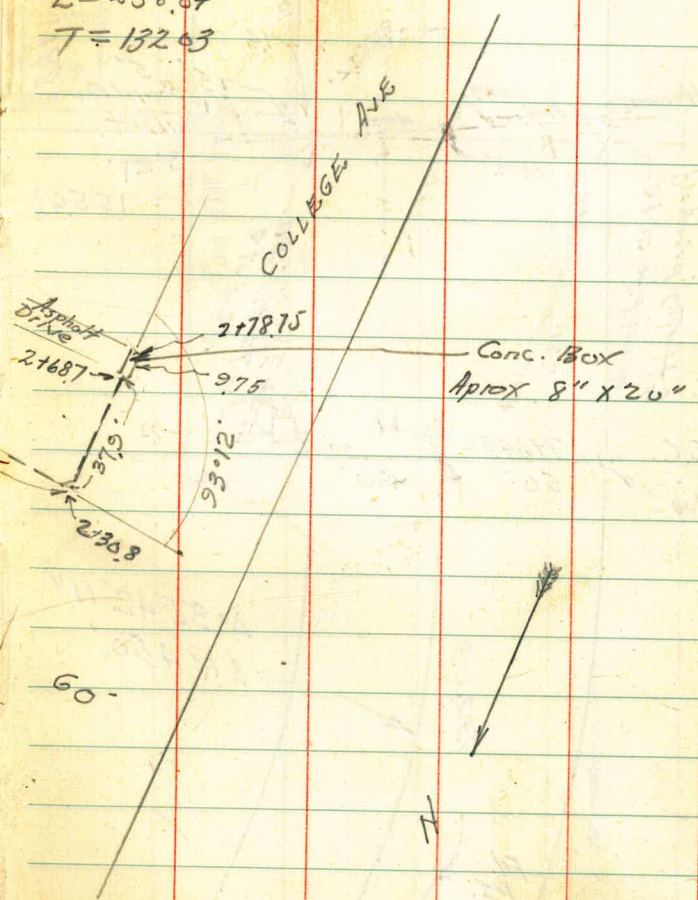 T = 132.03
COLLEGE AVE
Asphalt
Drive
2+78.75
2+68.7
9.75
Conc. Box
Aprox 8" x 20"
37.9'
93°12'
2+30.8
60-
N